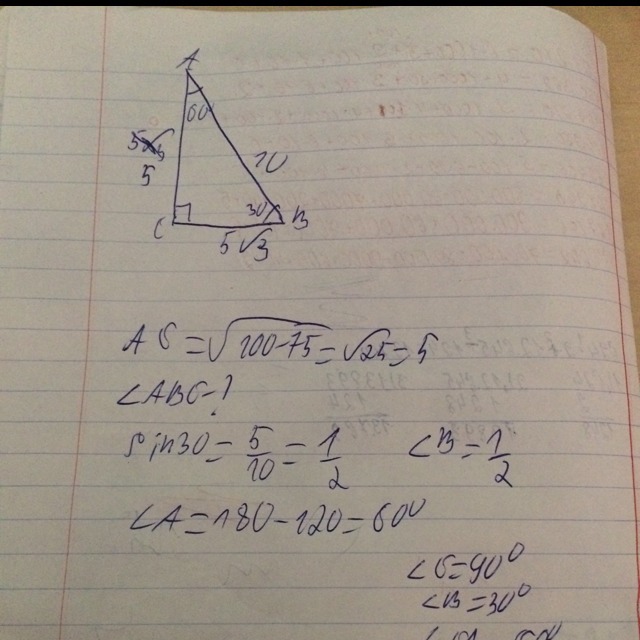 A
60°
5
10
C
30
B
5√3
AC = √100-75 = √25 = 5
∠ABC-?
Sin30 = 5/10 = 1/2
∠B = 1/2
∠A = 180 - 120 = 60°
∠C = 90°
∠B = 30°